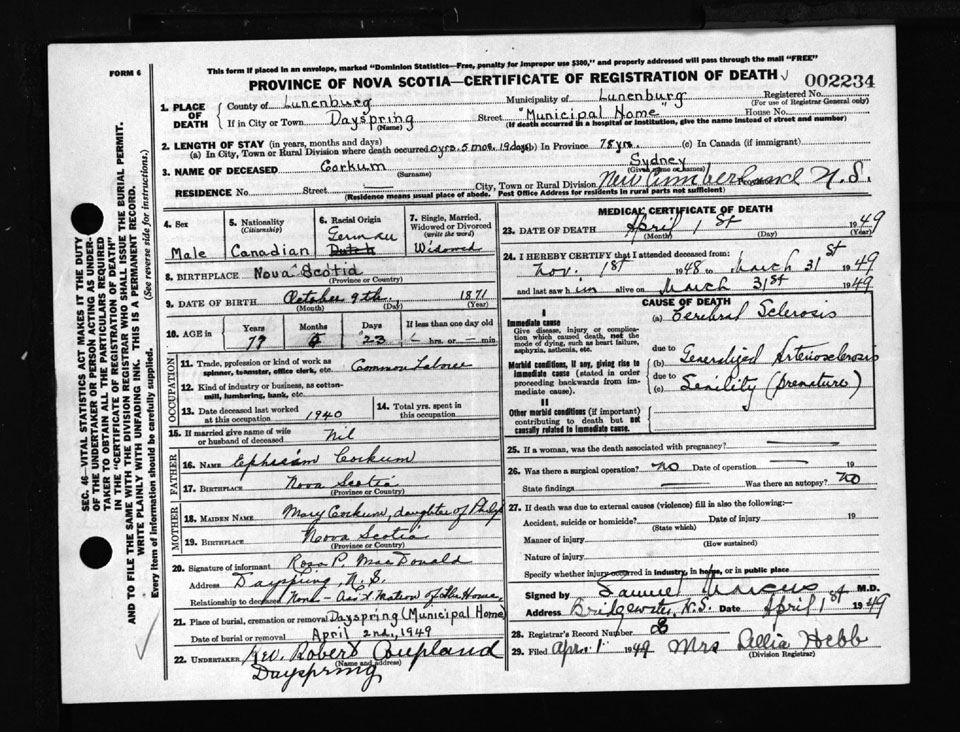 FORM 6
This form if placed in an envelope, marked "Dominion Statistics—Free, penalty for improper use $300," and properly addressed will pass through the mail "FREE"
PROVINCE OF NOVA SCOTIA—CERTIFICATE OF REGISTRATION OF DEATH
002234
1. PLACE OF DEATH
County of Lunenburg Municipality of Lunenburg Registered No.
(For use of Registrar General only)
If in City or Town Dayspring (Name) Street "Municipal Home" House No.
(If death occurred in a hospital or institution, give the name instead of street and number)
2. LENGTH OF STAY (in years, months and days)
(a) In City, Town or Rural Division where death occurred 0 yrs. 5 mos. 19 days (b) In Province 78 yrs. (c) In Canada (if immigrant)
3. NAME OF DECEASED Corkum (Surname) Sydney (Given name or names)
RESIDENCE No. Street City, Town or Rural Division New Cumberland N.S.
(Residence means usual place of abode. Post Office Address for residents in rural parts not sufficient)
4. Sex Male
5. Nationality (Citizenship) Canadian
6. Racial Origin German Dutch
7. Single, Married, Widowed or Divorced (write the word) Widowed
8. BIRTHPLACE Nova Scotia
(Province or Country)
9. DATE OF BIRTH October 9th. 1871
(Month) (Day) (Year)
10. AGE in Years 77 Months Days 23 If less than one day hrs. or min.
OCCUPATION
11. Trade, profession or kind of work as spinner, teamster, office clerk, etc. Common Laborer
12. Kind of industry or business, as cotton-mill, lumbering, bank, etc.
13. Date deceased last worked at this occupation 1940
14. Total yrs. spent in this occupation
15. If married give name of wife or husband of deceased Nil
FATHER
16. NAME Ephraim Corkum
17. BIRTHPLACE Nova Scotia
(Province or Country)
MOTHER
18. MAIDEN NAME Mary Corkum, daughter of Philip
19. BIRTHPLACE Nova Scotia
(Province or Country)
20. Signature of informant Rosa P. MacDonald
Address Dayspring, N.S.
Relationship to deceased None - Ass't Matron of the Home
21. Place of burial, cremation or removal Dayspring (Municipal Home)
Date of burial or removal April 2nd, 1949
22. UNDERTAKER Rev. Robert Coupland
(Name and address)
Dayspring
MEDICAL CERTIFICATE OF DEATH
23. DATE OF DEATH April 1st 1949
(Month) (Day) (Year)
24. I HEREBY CERTIFY that I attended deceased from:
Nov. 1st 1948 to March 31st 1949
and last saw him alive on March 31st 1949
CAUSE OF DEATH
I
Immediate cause
Give disease, injury or complication which caused death, not the mode of dying, such as heart failure, asphyxia, asthenia, etc.
(a) Cerebral Sclerosis
due to
Morbid conditions, if any, giving rise to immediate cause (stated in order proceeding backwards from immediate cause).
(b) Generalized Arteriosclerosis
due to
(c) Senility (premature)
II
Other morbid conditions (if important) contributing to death but not causally related to immediate cause.
25. If a woman, was the death associated with pregnancy?
26. Was there a surgical operation? no Date of operation 19
State findings Was there an autopsy? no
27. If death was due to external causes (violence) fill in also the following:—
Accident, suicide or homicide? Date of injury 19
(State which)
Manner of injury
(How sustained)
Nature of injury
Specify whether injury occurred in industry, in home, or in public place
Signed by Samuel Marcus M.D.
Address Bridgewater, N.S. Date April 1st 1949
28. Registrar's Record Number 8
29. Filed Apr. 1 1949 Mrs Lellia Hebb
(Division Registrar)
SEC. 46—VITAL STATISTICS ACT MAKES IT THE DUTY
OF THE UNDERTAKER OR PERSON ACTING AS UNDER-
TAKER TO OBTAIN ALL THE PARTICULARS REQUIRED
IN THE "CERTIFICATE OF REGISTRATION OF DEATH"
AND TO FILE THE SAME WITH THE DIVISION REGISTRAR WHO SHALL ISSUE THE BURIAL PERMIT.
WRITE PLAINLY WITH UNFADING INK. THIS IS A PERMANENT RECORD.
Every item of information should be carefully supplied. (See reverse side for instructions.)